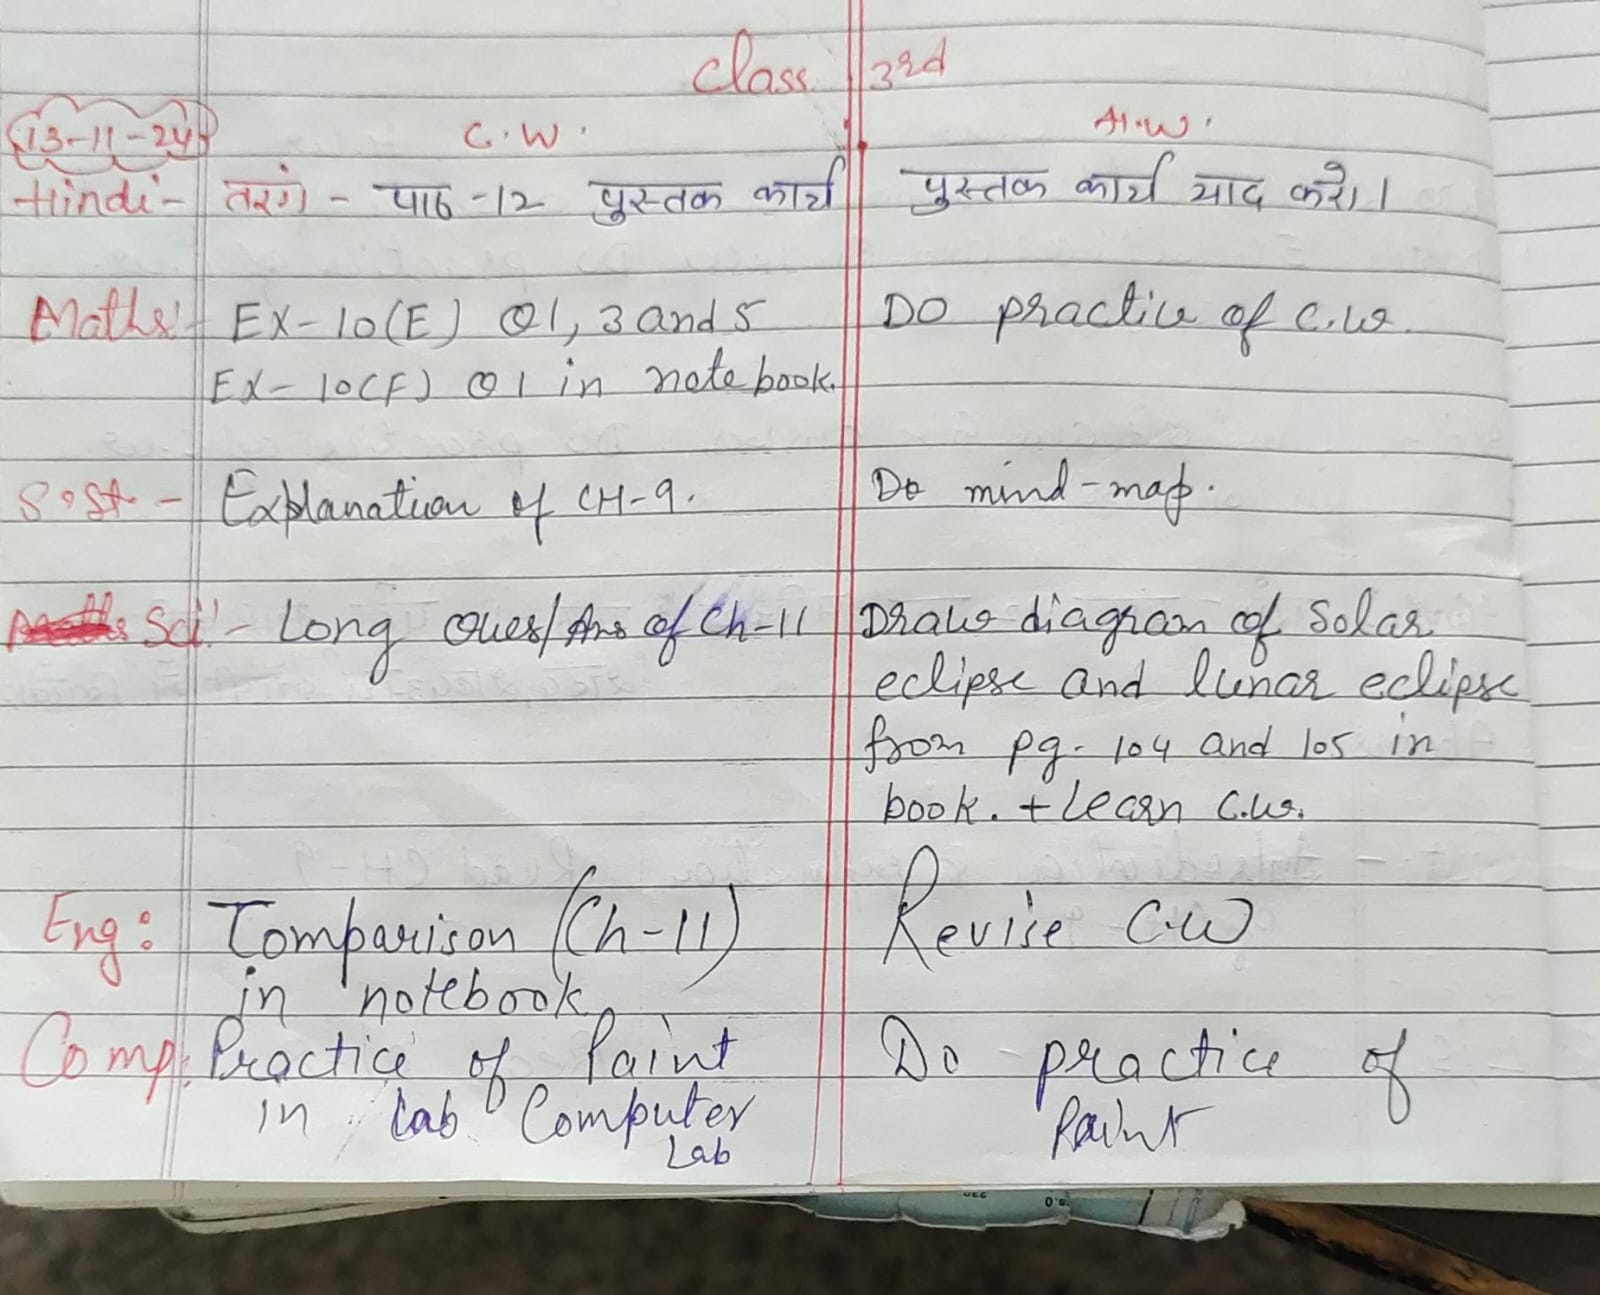 Class 3rd
13-11-24 C.W. H.W.
Hindi- तरंग - पाठ -12 पुस्तक कार्य पुस्तक कार्य याद करो।
Maths:- Ex-10(E) Q1, 3 and 5 DO practice of C.W.
Ex-10(F) Q1 in notebook.
S.St - Explanation of CH-9. Do mind-map.
Maths Sci:- Long Ques/Ans of Ch-11 Draw diagram of Solar
eclipse and lunar eclipse
from pg. 104 and 105 in
book. + Learn C.W.
Eng: Comparison (Ch-11) Revise C.W
in notebook.
Comp: Practice of Paint Do practice of
in Lab Computer Paint
Lab